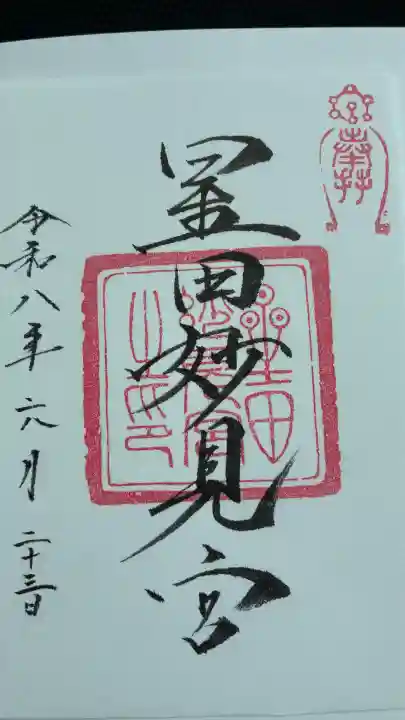 奉拝
星田妙見宮
星田妙見宮之印
令和八年六月二十三日